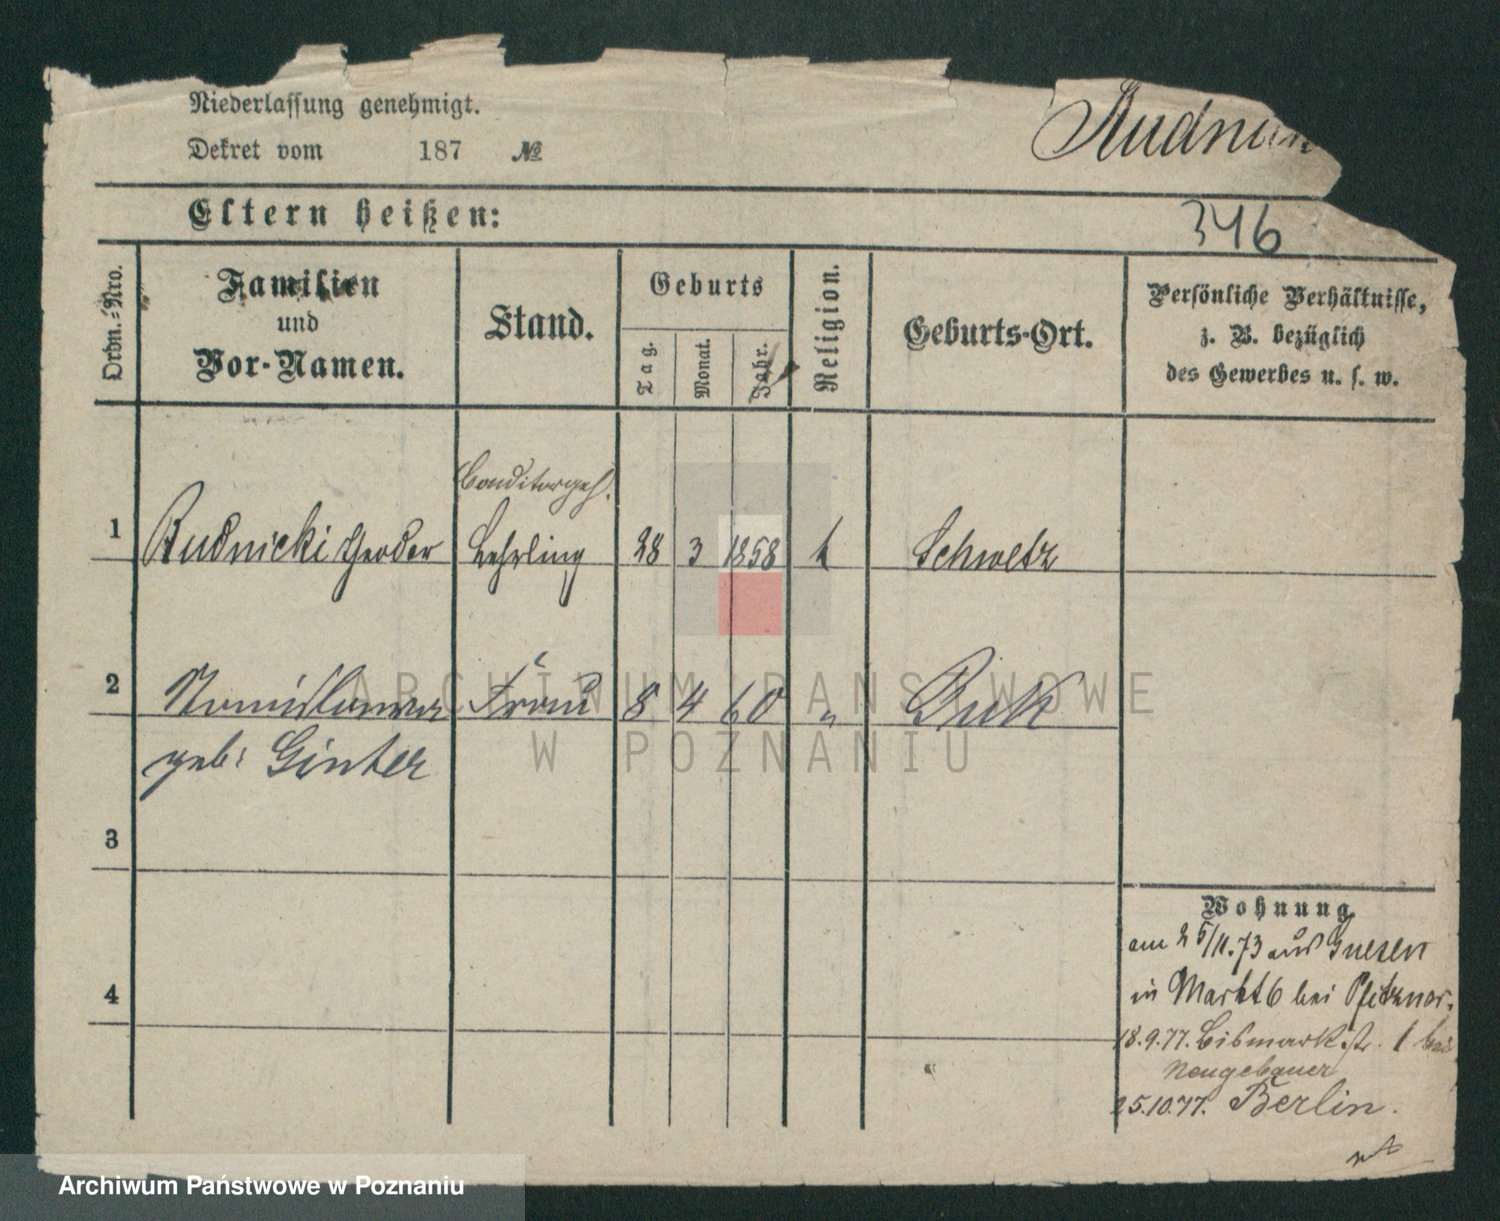 Niederlassung genehmigt.
Dekret vom 187 №
Rudnick
346
Eltern heißen:
Ordn.-Nro.
Familien
und
Vor-Namen.
Stand.
Geburts
Tag.
Monat.
Jahr.
Religion.
Geburts-Ort.
Persönliche Verhältnisse,
z. B. bezüglich
des Gewerbes u. s. w.
Conditorgeh.
1 Rudnicki Theodor Lehrling 28 3 1858 k Schwetz
2 Stanislawa Frau 8 4 60 " Buk
geb: Ginter
3
4
Wohnung
am 25/11.73 aus Gnesen
in Markt 6 bei Pfitzner.
18.9.77. Bismarkstr. 1 bei
Neugebauer
25.10.77. Berlin.
ARCHIWUM PAŃSTWOWE
W POZNANIU
Archiwum Państwowe w Poznaniu